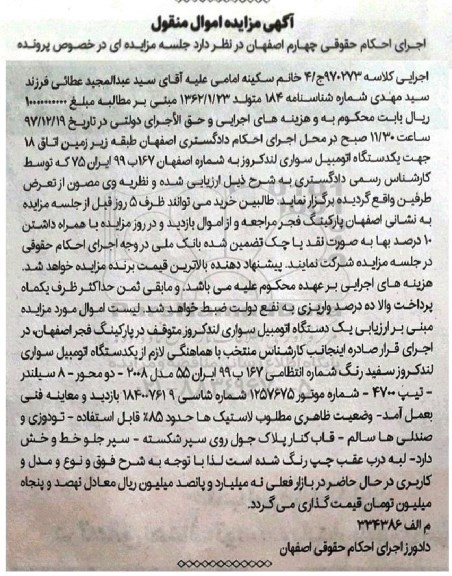 آگهی مزایده اموال منقول
اجرای احکام حقوقی چهارم اصفهان در نظر دارد جلسه مزایده ای در خصوص پرونده
اجرایی کلاسه ۹۷۰۲۷۳ج/۴ خانم سکینه امامی علیه آقای سید عبدالمجید عطائی فرزند
سید مهدی شماره شناسنامه ۱۸۴ متولد ۱۳۶۲/۱/۲۳ مبنی بر مطالبه مبلغ ۱۰۰۰۰۰۰۰۰۰
ریال بابت محکوم به و هزینه های اجرایی و حق الأجرای دولتی در تاریخ ۹۷/۱۲/۱۹
ساعت ۱۱/۳۰ صبح در محل اجرای احکام دادگستری اصفهان طبقه زیر زمین اتاق ۱۸
جهت یکدستگاه اتومبیل سواری لندکروز به شماره اصفهان ۱۶۷ب ۹۹ ایران ۷۵ که توسط
کارشناس رسمی دادگستری به شرح ذیل ارزیابی شده و نظریه وی مصون از تعرض
طرفین واقع گردیده برگزار نماید. طالبین خرید می توانند ظرف ۵ روز قبل از جلسه مزایده
به نشانی اصفهان پارکینگ فجر مراجعه و از اموال بازدید و در روز مزایده با همراه داشتن
۱۰ درصد بها به صورت نقد یا چک تضمین شده بانک ملی در وجه اجرای احکام حقوقی
در جلسه مزایده شرکت نمایند. پیشنهاد دهنده بالاترین قیمت برنده مزایده خواهد شد.
هزینه های اجرایی بر عهده محکوم علیه می باشد. و مابقی ثمن حداکثر ظرف یکماه
پرداخت والا ده درصد واریزی به نفع دولت ضبط خواهد شد. لیست اموال مورد مزایده
مبنی بر ارزیابی یک دستگاه اتومبیل سواری لندکروز متوقف در پارکینگ فجر اصفهان، در
اجرای قرار صادره اینجانب کارشناس منتخب با هماهنگی لازم از یکدستگاه اتومبیل سواری
لندکروز سفید رنگ شماره انتظامی ۱۶۷ ب ۹۹ ایران ۵۵ مدل ۲۰۰۸ - دو محور - ۸ سیلندر
- تیپ ۴۷۰۰ - شماره موتور ۱۲۵۷۶۷۵ شماره شاسی ۱۸۴۰۰۷۶۱۹ بازدید و معاینه فنی
بعمل آمد- وضعیت ظاهری مطلوب لاستیک ها حدود ۸۵٪ قابل استفاده - تودوزی و
صندلی ها سالم - قاب کنار پلاک جول روی سپر شکسته - سپر جلو خط و خش
دارد- لبه درب عقب چپ رنگ شده است لذا با توجه به شرح فوق و نوع و مدل و
کاربری در حال حاضر در بازار فعلی نه میلیارد و پانصد میلیون ریال معادل نهصد و پنجاه
میلیون تومان قیمت گذاری می گردد.
م الف ۳۳۴۳۸۶
دادورز اجرای احکام حقوقی اصفهان